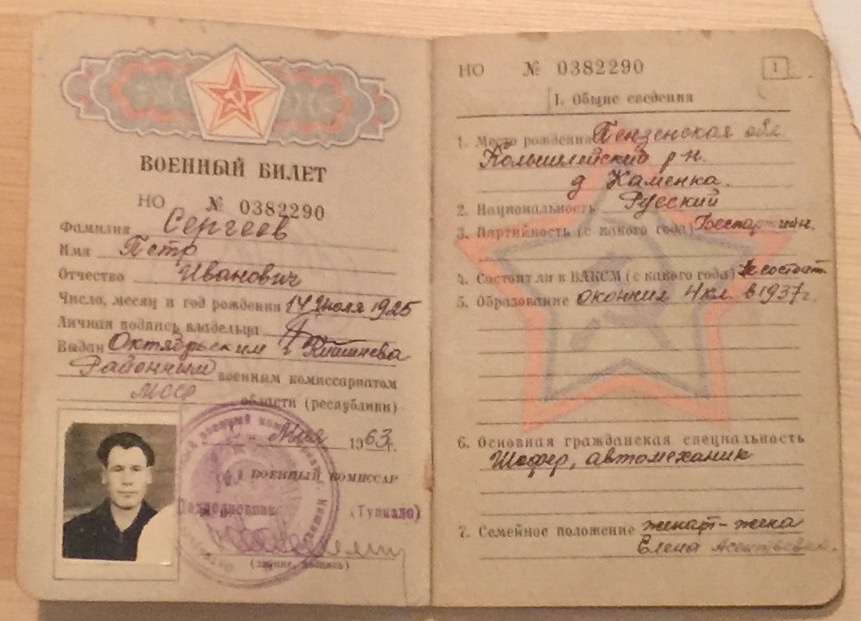 ВОЕННЫЙ БИЛЕТ
НО № 0382290
Фамилия Сергеев
Имя Петр
Отчество Иванович
Число, месяц и год рождения 14 Июля 1925
Личная подпись владельца
Выдан Октябрьским г Кишинева
Районным военным комиссариатом
МССР области (республики)
1963 г.
ВОЕННЫЙ КОМИССАР
Подполковник (Тупкало)
(звание, подпись)
НО № 0382290 1
I. Общие сведения
1. Место рождения Пензенская обл
Колышлейский р-н.
д Каменка.
2. Национальность Русский
3. Партийность (с какого года)
4. Состоит ли в ВЛКСМ (с какого года) Не состоит
5. Образование окончил 4 кл. в 1937 г.
6. Основная гражданская специальность
Шофер, автомеханик
7. Семейное положение женат-жена
Елена